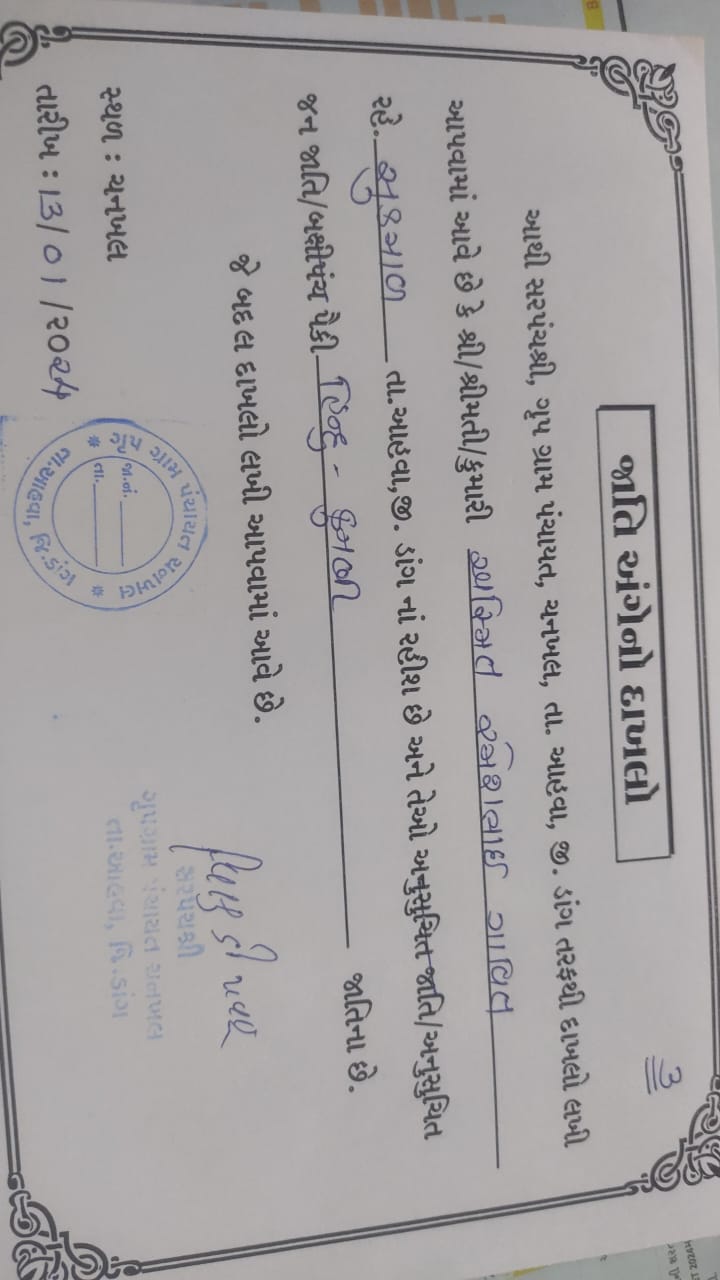 3
જાતિ અંગેનો દાખલો
આથી સરપંચશ્રી, ગૃપ ગ્રામ પંચાયત, ચનખલ, તા. આહવા, જી. ડાંગ તરફથી દાખલો લખી
આપવામાં આવે છે કે શ્રી/શ્રીમતી/કુમારી ગાવિત
રહે. તા.આહવા,જી. ડાંગ નાં રહીશ છે અને તેઓ અનુસુચિત જાતિ/અનુસુચિત
જન જાતિ/બક્ષીપંચ પૈકી હિન્દુ - કુનબી જાતિના છે.
જે બદલ દાખલો લખી આપવામાં આવે છે.
સ્થળ : ચનખલ
તારીખ : 13/01/2024
ગૃપ ગ્રામ પંચાયત ચનખલ
જા.નં.
તા.
તા.આહવા, જી.ડાંગ
સરપંચશ્રી
ગૃપગ્રામ પંચાયત ચનખલ
તા.આહવા, જિ.ડાંગ